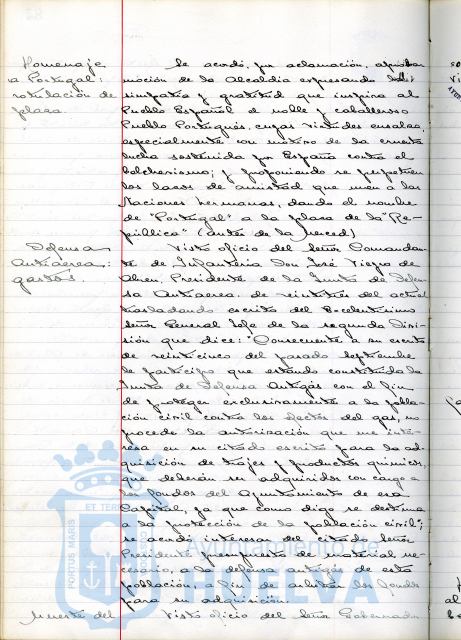 Homenaje
a Portugal:
rotulación de
plaza.
Se acordó, por aclamación, aprobar
moción de la Alcaldía expresando la
simpatía y gratitud que inspira al
Pueblo Español el noble y caballeroso
Pueblo Portugués, cuyas virtudes ensalza,
especialmente con motivo de la cruenta
lucha sostenida por España contra el
bolchevismo; y proponiendo se perpetúen
los lazos de amistad que unen a las
Naciones hermanas, dando el nombre
de "Portugal" a la plaza de la "Re-
pública" (antes de la Merced)
Defensa
Antiaérea:
gastos.
Visto oficio del Señor Comandan-
te de Infantería Don José Viegro de
Abreu, Presidente de la Junta de Defen-
sa Antiaerea, de veintitrés del actual
trasladando escrito del Excelentísimo
Señor General Jefe de la segunda Divi-
sión que dice: "Consecuente a su escrito
de veinticinco del pasado Septiembre
le participo que estando constituida la
Junta de Defensa Antigás con el fin
de proteger exclusivamente a la pobla-
ción civil contra los efectos del gas, no
procede la autorización que me inte-
resa en su citado escrito para la ad-
quisición de trajes y productos químicos,
que deberán ser adquiridos con cargo a
los fondos del Ayuntamiento de esa
Capital, ya que como digo se destina
a la protección de la población civil";
se acordó interesar del citado Señor
Presidente presupuesto de material ne-
cesario, a la defensa antigás de esta
población, a fin de arbitrar los fondos
para su adquisición.
Muerte del
Visto oficio del Señor Gobernador
PORTUS MARIS
ET TERRAE
Ayuntamiento de
HUELVA